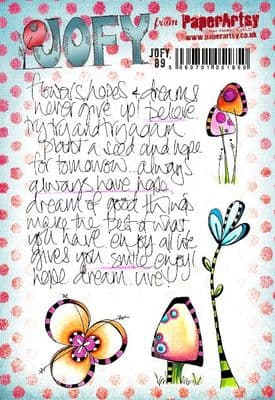 JOFY from PaperArtsy
www.paperartsy.co.uk
JOFY
89
flowers hopes & dreams
never give up! believe
try try and try again
plant a seed and hope
for tomorrow... always
always have hope
dream of good things
make the best of what
you have enjoy all life
gives you smile enjoy!
hope dream live!